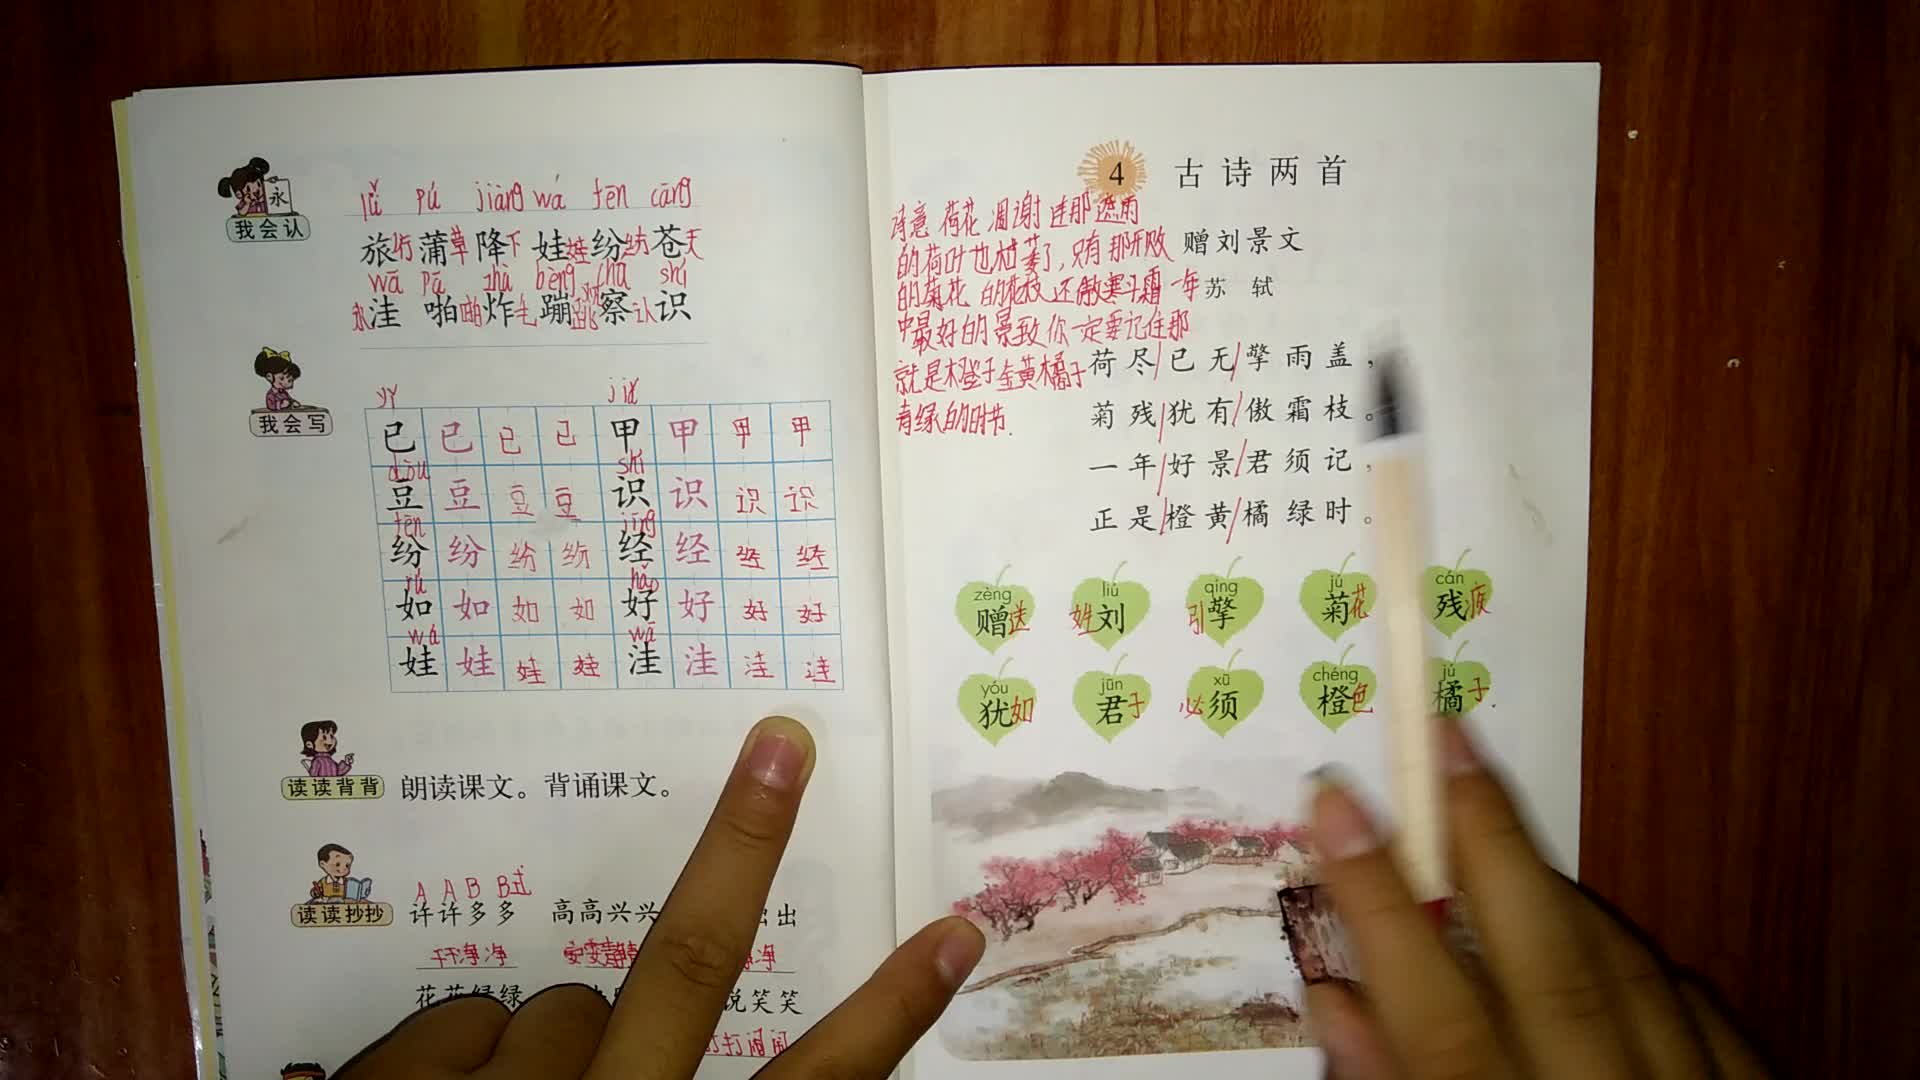 永
我会认
lǚ pú jiàng wá fēn cāng
旅行 蒲草 降下 娃娃 纷纷 苍天
wā pā zhà bèng chá shí
水洼 啪啪 炸毛 蹦跳 察 认识
我会写
yǐ jiǎ
已 已 已 已 甲 甲 甲 甲
dòu shí
豆 豆 豆 豆 识 识 识 识
fēn jīng
纷 纷 纷 纷 经 经 经 经
rú hǎo
如 如 如 如 好 好 好 好
wá wā
娃 娃 娃 娃 洼 洼 洼 洼
读读背背
朗读课文。背诵课文。
A A B B式
读读抄抄
许许多多 高高兴兴 出
干干净净 安安静静 净
花花绿绿 说笑笑
打打闹闹
4 古诗两首
诗意 荷花 凋谢 连那遮雨
的荷叶也枯萎了,只有那开败
的菊花 的花枝还傲寒斗霜 一年
中最好的景致你一定要记住那
就是橙子金黄橘子
青绿的时节.
赠刘景文
苏 轼
荷尽/已无/擎雨盖,
菊残/犹有/傲霜枝。
一年/好景/君须记,
正是/橙黄/橘绿时。
zèng liú qíng jú cán
赠送 姓刘 引擎 菊花 残疾
yóu jūn xū chéng jú
犹如 君子 必须 橙色 橘子.